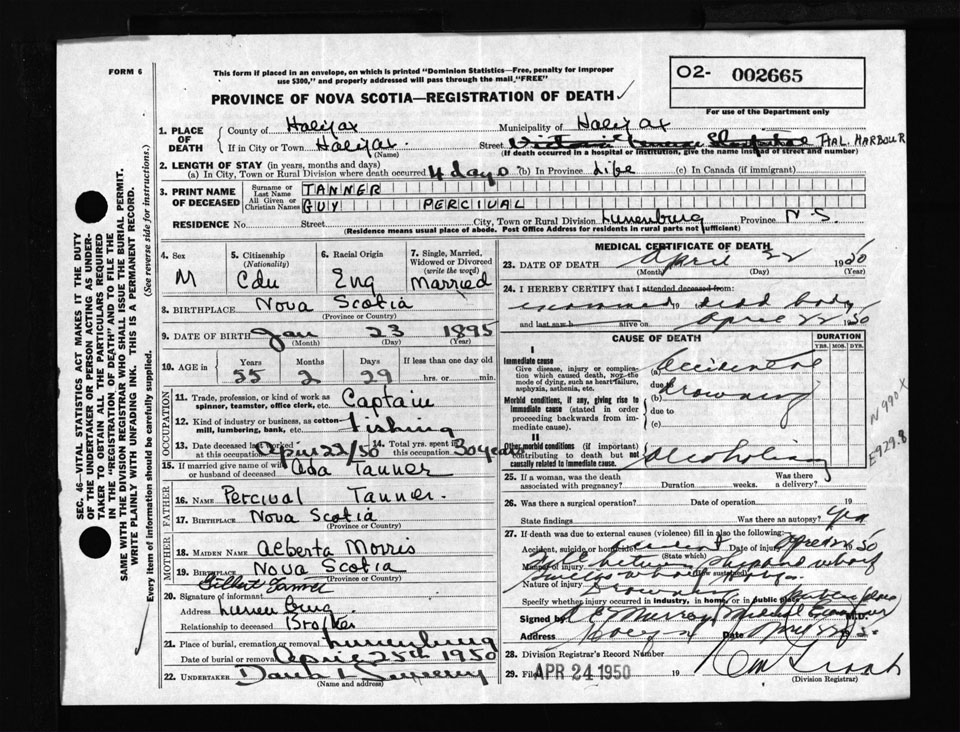 FORM 6
This form if placed in an envelope, on which is printed "Dominion Statistics—Free, penalty for improper
use $300," and properly addressed will pass through the mail, "FREE"
O2- 002665
For use of the Department only
PROVINCE OF NOVA SCOTIA—REGISTRATION OF DEATH
1. PLACE OF DEATH
County of Halifax Municipality of Halifax
If in City or Town Halifax. Street Victoria General Hospital HAL. HARBOUR
(Name) (If death occurred in a hospital or institution, give the name instead of street and number)
2. LENGTH OF STAY (in years, months and days)
(a) In City, Town or Rural Division where death occurred 4 days (b) In Province Life (c) In Canada (if immigrant)
3. PRINT NAME OF DECEASED
Surname or Last Name TANNER
All Given or Christian Names GUY PERCIVAL
RESIDENCE No. Street City, Town or Rural Division Lunenburg Province N.S.
(Residence means usual place of abode. Post Office Address for residents in rural parts not sufficient)
4. Sex
M
5. Citizenship
(Nationality)
Cdn
6. Racial Origin
Eng
7. Single, Married, Widowed or Divorced
(write the word)
Married
8. BIRTHPLACE Nova Scotia
(Province or Country)
9. DATE OF BIRTH Jan 23 1895
(Month) (Day) (Year)
10. AGE in
Years Months Days If less than one day old
55 2 29 hrs. or min.
OCCUPATION
11. Trade, profession, or kind of work as spinner, teamster, office clerk, etc. Captain
12. Kind of industry or business, as cotton-mill, lumbering, bank, etc. Fishing
13. Date deceased last worked at this occupation April 22/50 14. Total yrs. spent in this occupation 30 years
15. If married give name of wife or husband of deceased Ada Tanner
FATHER
16. NAME Percival Tanner.
17. BIRTHPLACE Nova Scotia
(Province or Country)
MOTHER
18. MAIDEN NAME Alberta Morris
19. BIRTHPLACE Nova Scotia
(Province or Country)
Gilbert Tanner
20. Signature of informant
Address Lunenburg.
Relationship to deceased Brother
21. Place of burial, cremation or removal Lunenburg
Date of burial or removal April 25th 1950
22. UNDERTAKER
(Name and address)
MEDICAL CERTIFICATE OF DEATH
23. DATE OF DEATH April 22 1950
(Month) (Day) (Year)
24. I HEREBY CERTIFY that I attended deceased from:
examined 19 dead body
and last saw h alive on April 22 1950
CAUSE OF DEATH
DURATION
YRS. MOS. DYS.
I
Immediate cause
Give disease, injury or complication which caused death, not the mode of dying, such as heart failure, asphyxia, asthenia, etc.
(a) Accidental
due to
Morbid conditions, if any, giving rise to immediate cause (stated in order proceeding backwards from immediate cause).
(b) Drowning
due to
(c)
II
Other morbid conditions (if important) contributing to death but not causally related to immediate cause.
Alcoholism
N990X
E929.8
25. If a woman, was the death associated with pregnancy? Duration weeks. Was there a delivery?
26. Was there a surgical operation? Date of operation 19
State findings Was there an autopsy? Yes
27. If death was due to external causes (violence) fill in also the following:
Accident, suicide or homicide? Accident Date of injury April 22 1950
(State which)
Manner of injury Fell between ship and wharf
(How sustained)
Nature of injury Drowning
Specify whether injury occurred in industry, in home, or in public place Public place
Signed by Murray Medical Examiner M.D.
Address Halifax Date April 22
28. Division Registrar's Record Number
29. Filed APR 24 1950 19
(Division Registrar)
SEC. 46—VITAL STATISTICS ACT MAKES IT THE DUTY
OF THE UNDERTAKER OR PERSON ACTING AS UNDER-
TAKER TO OBTAIN ALL THE PARTICULARS REQUIRED
IN THE "REGISTRATION OF DEATH" AND TO FILE THE
SAME WITH THE DIVISION REGISTRAR WHO SHALL ISSUE THE BURIAL PERMIT.
WRITE PLAINLY WITH UNFADING INK. THIS IS A PERMANENT RECORD.
Every item of information should be carefully supplied. (See reverse side for instructions.)